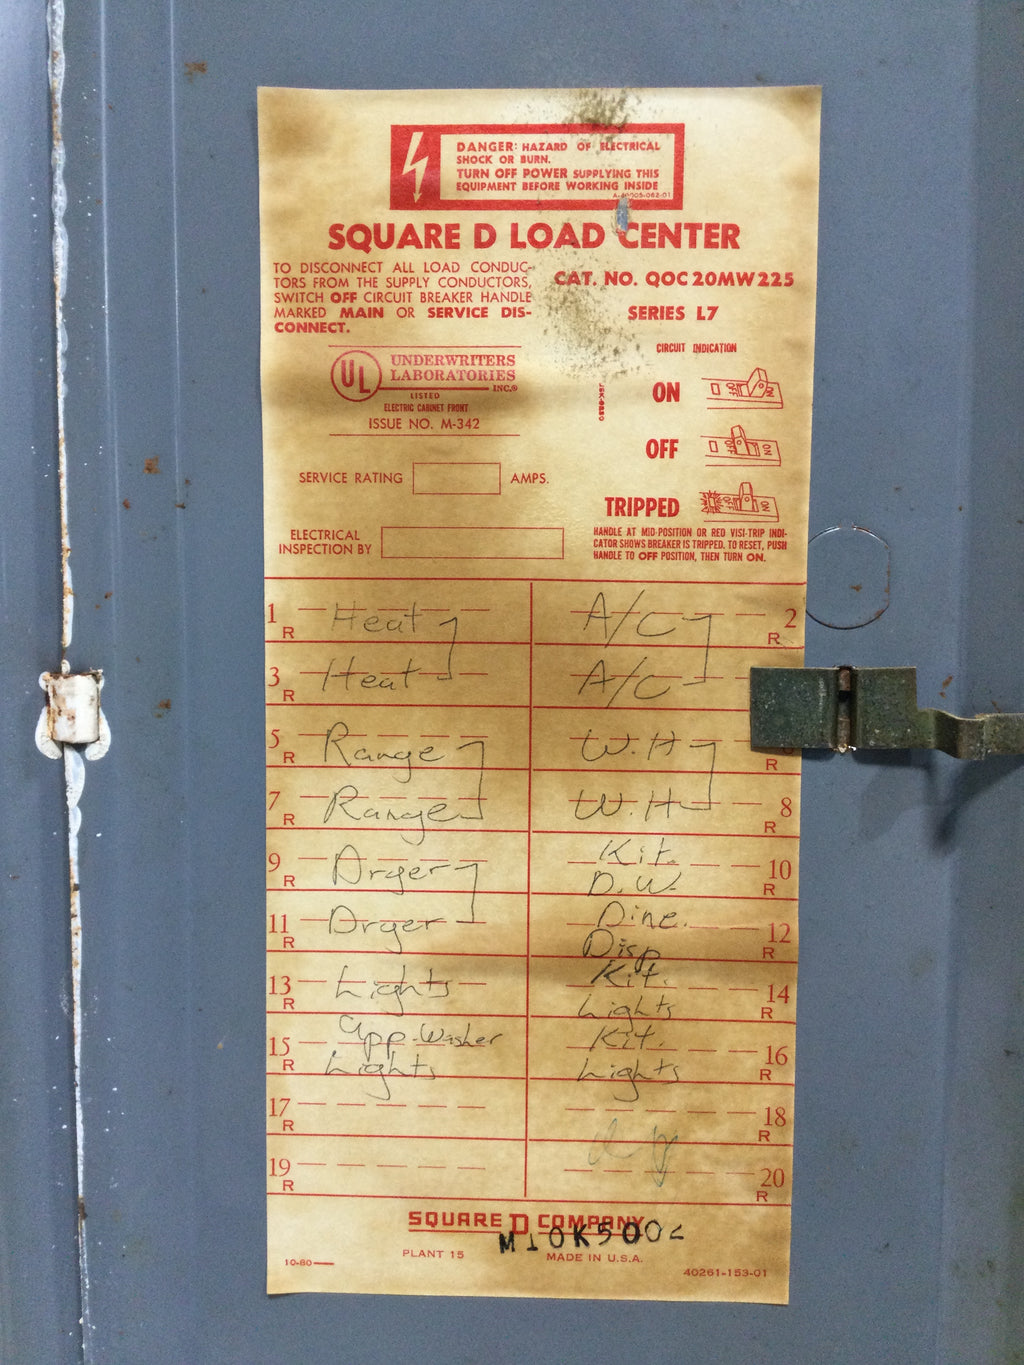 DANGER: HAZARD OF ELECTRICAL
SHOCK OR BURN.
TURN OFF POWER SUPPLYING THIS
EQUIPMENT BEFORE WORKING INSIDE
SQUARE D LOAD CENTER
TO DISCONNECT ALL LOAD CONDUC-
TORS FROM THE SUPPLY CONDUCTORS,
SWITCH OFF CIRCUIT BREAKER HANDLE
MARKED MAIN OR SERVICE DIS-
CONNECT.
CAT. NO. QOC20MW225
SERIES L7
UL
UNDERWRITERS
LABORATORIES
INC.®
LISTED
ELECTRIC CABINET FRONT
ISSUE NO. M-342
CIRCUIT INDICATION
ON
OFF
TRIPPED
HANDLE AT MID-POSITION OR RED VISI-TRIP INDI-
CATOR SHOWS BREAKER IS TRIPPED. TO RESET, PUSH
HANDLE TO OFF POSITION, THEN TURN ON.
SERVICE RATING AMPS.
ELECTRICAL
INSPECTION BY
1 R Heat A/C 2 R
3 R Heat A/C
5 R Range W.H R
7 R Range W.H 8 R
9 R Dryer Kit. D.W. 10 R
11 R Dryer Dine. Disp 12 R
13 R Lights Kit. Lights 14 R
15 R app. Washer Lights Kit. Lights 16 R
17 R 18 R
19 R 20 R
SQUARE D COMPANY
PLANT 15
MADE IN U.S.A.
10-80
40261-153-01